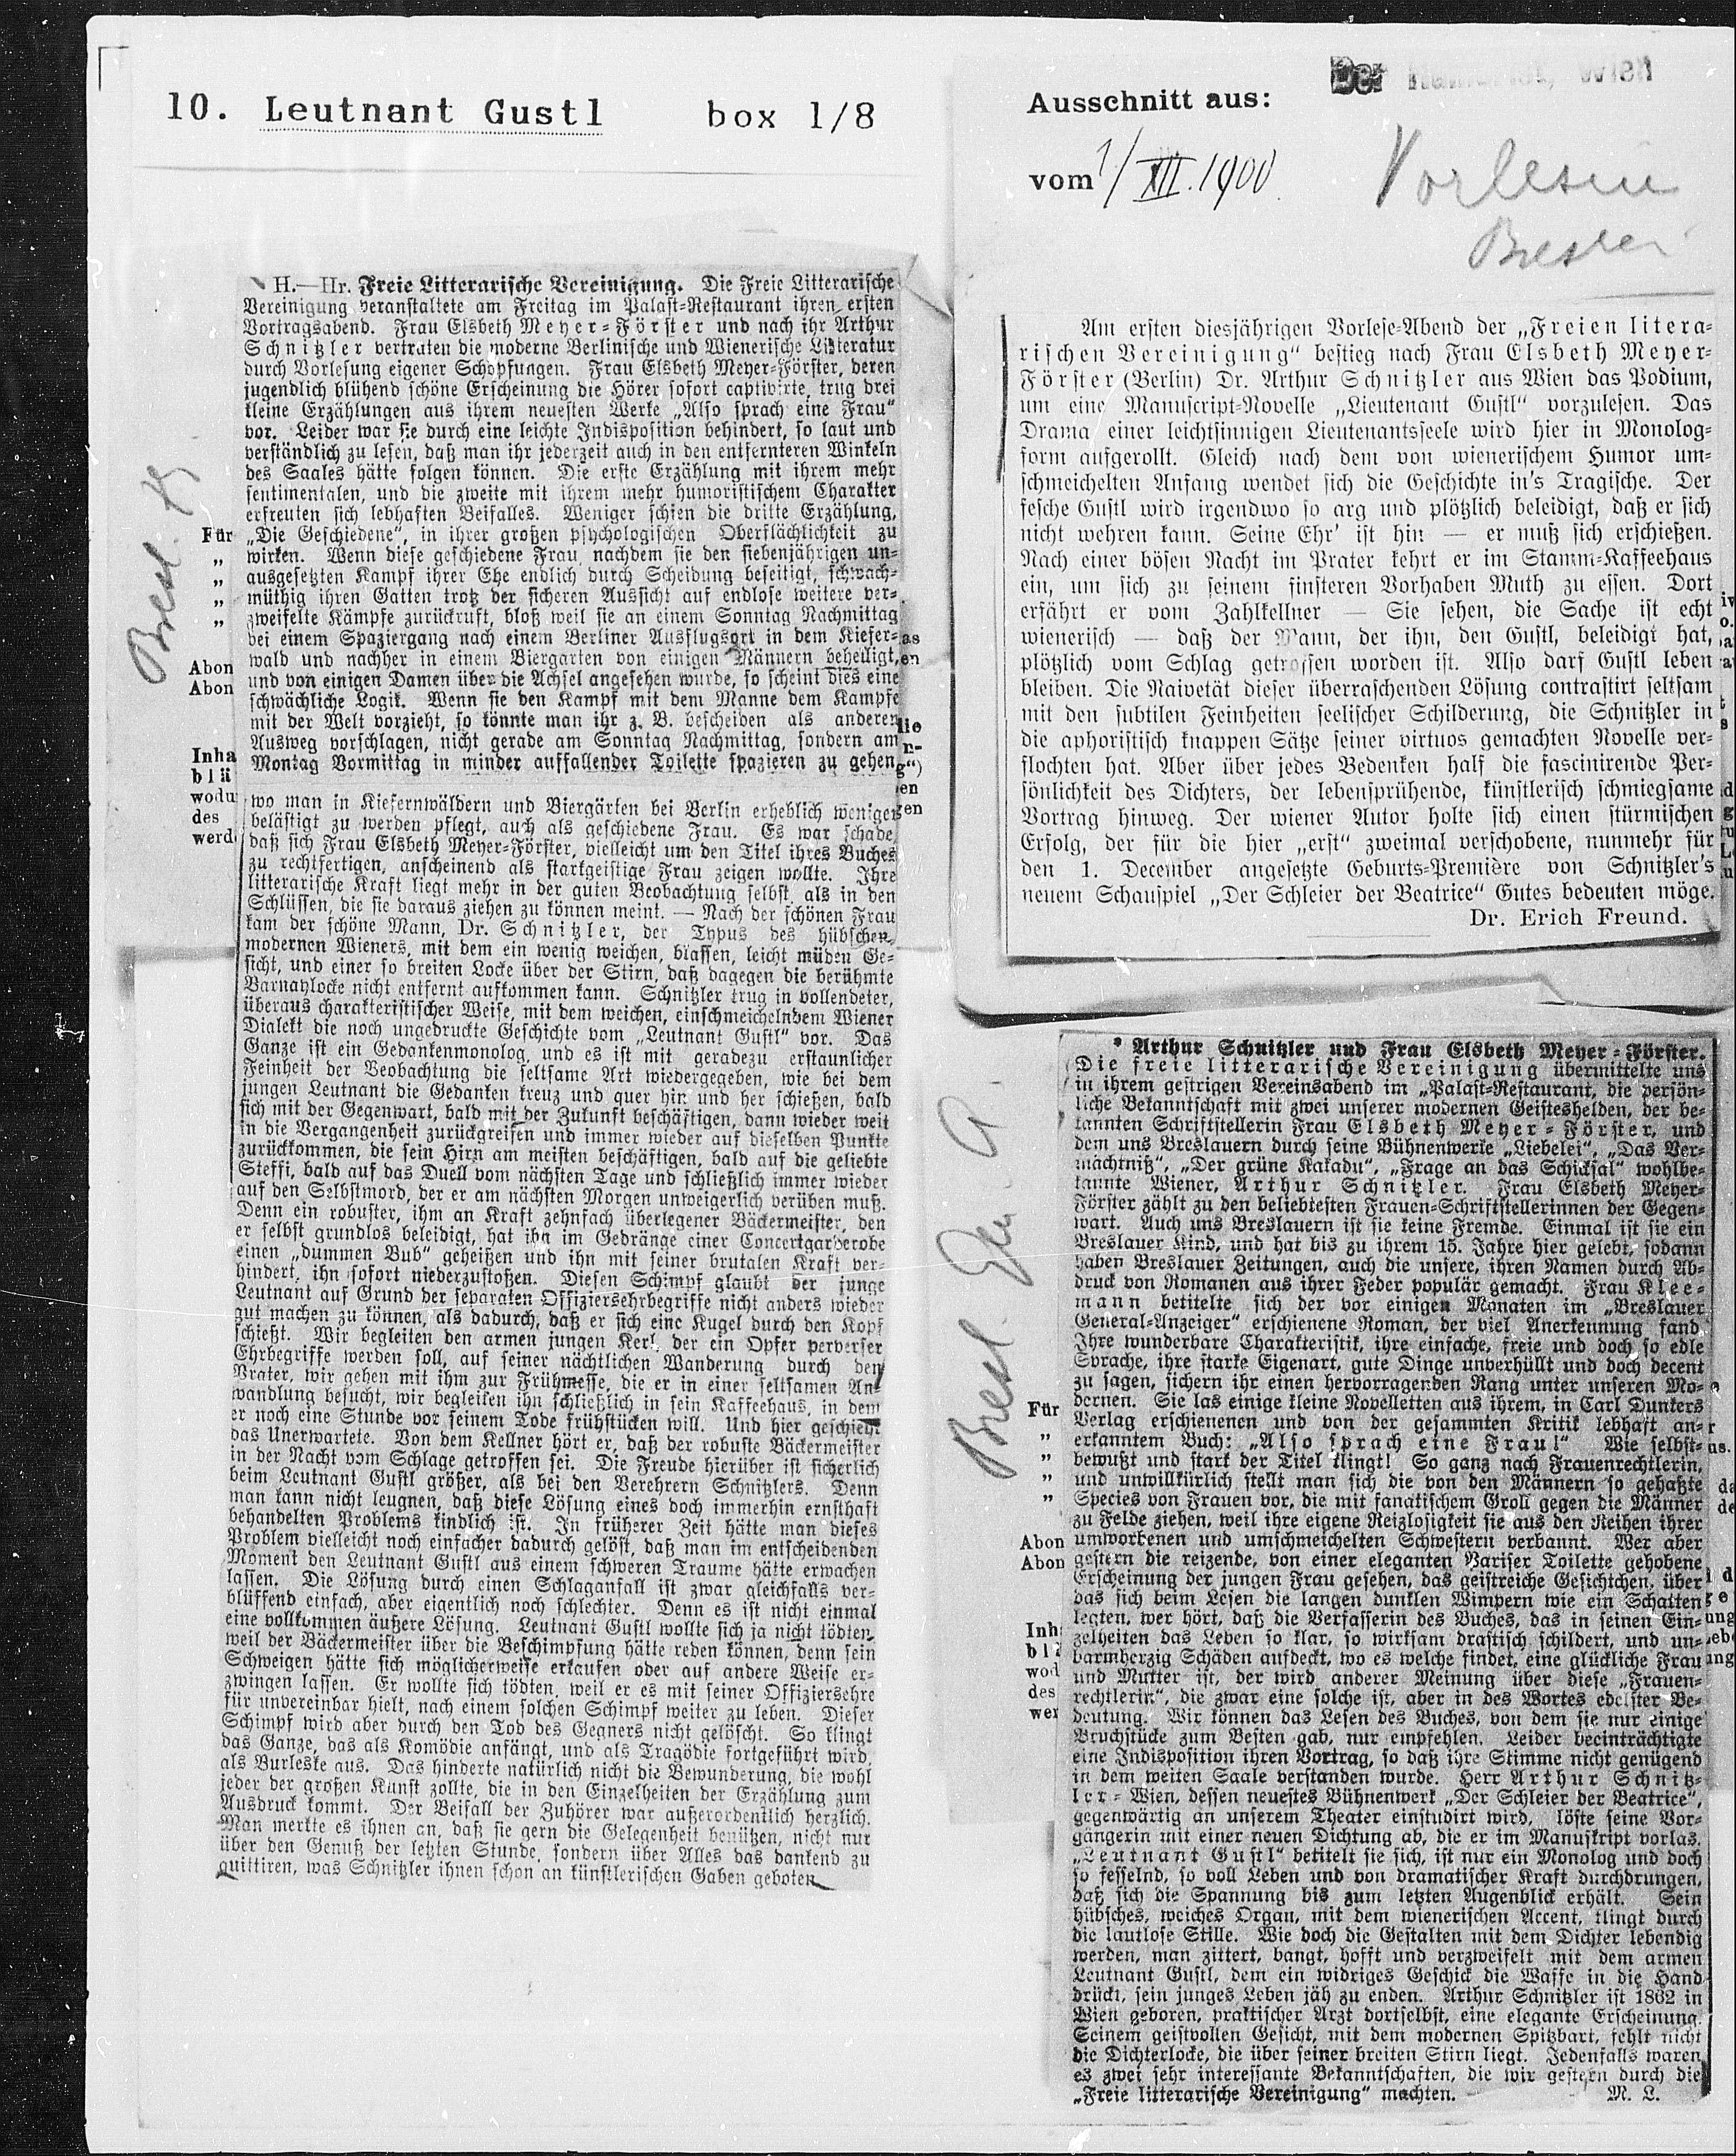 10. Leutnant Gustl box 1/8
H.—Hr. Freie Litterarische Vereinigung. Die Freie Litterarische
Vereinigung veranstaltete am Freitag im Palast-Restaurant ihren ersten
Vortragsabend. Frau Elsbeth Meyer-Förster und nach ihr Arthur
Schnitzler vertraten die moderne Berlinische und Wienerische Litteratur
durch Vorlesung eigener Schöpfungen. Frau Elsbeth Meyer-Förster, deren
jugendlich blühend schöne Erscheinung die Hörer sofort captivirte, trug drei
kleine Erzählungen aus ihrem neuesten Werke „Also sprach eine Frau“
vor. Leider war sie durch eine leichte Indisposition behindert, so laut und
verständlich zu lesen, daß man ihr jederzeit auch in den entfernteren Winkeln
des Saales hätte folgen können. Die erste Erzählung mit ihrem mehr
sentimentalen, und die zweite mit ihrem mehr humoristischem Charakter
erfreuten sich lebhaften Beifalles. Weniger schien die dritte Erzählung,
„Die Geschiedene“, in ihrer großen psychologischen Oberflächlichkeit zu
wirken. Wenn diese geschiedene Frau, nachdem sie den siebenjährigen un-
ausgesetzten Kampf ihrer Ehe endlich durch Scheidung beseitigt, schwach-
müthig ihren Gatten trotz der sicheren Aussicht auf endlose weitere ver-
zweifelte Kämpfe zurückruft, bloß weil sie an einem Sonntag Nachmittag
bei einem Spaziergang nach einem Berliner Ausflugsort in dem Kiefer-
wald und nachher in einem Biergarten von einigen Männern behelligt,
und von einigen Damen über die Achsel angesehen wurde, so scheint dies eine
schwächliche Logik. Wenn sie den Kampf mit dem Manne dem Kampfe
mit der Welt vorzieht, so könnte man ihr z. B. bescheiden als anderen
Ausweg vorschlagen, nicht gerade am Sonntag Nachmittag, sondern am
Montag Vormittag in minder auffallender Toilette spazieren zu gehen,
wo man in Kiefernwäldern und Biergärten bei Berlin erheblich weniger
belästigt zu werden pflegt, auch als geschiedene Frau. Es war schade,
daß sich Frau Elsbeth Meyer-Förster, vielleicht um den Titel ihres Buches
zu rechtfertigen, anscheinend als starkgeistige Frau zeigen wollte. Ihre
litterarische Kraft liegt mehr in der guten Beobachtung selbst, als in den
Schlüssen, die sie daraus ziehen zu können meint. — Nach der schönen Frau
kam der schöne Mann, Dr. Schnitzler, der Typus des hübschen,
modernen Wieners, mit dem ein wenig weichen, blassen, leicht müden Ge-
sicht, und einer so breiten Locke über der Stirn, daß dagegen die berühmte
Barnaylocke nicht entfernt aufkommen kann. Schnitzler trug in vollendeter,
überaus charakteristischer Weise, mit dem weichen, einschmeichelndem Wiener
Dialekt die noch ungedruckte Geschichte vom „Leutnant Gustl“ vor. Das
Ganze ist ein Gedankenmonolog, und es ist mit geradezu erstaunlicher
Feinheit der Beobachtung die seltsame Art wiedergegeben, wie bei dem
jungen Leutnant die Gedanken kreuz und quer hin und her schießen, bald
sich mit der Gegenwart, bald mit der Zukunft beschäftigen, dann wieder weit
in die Vergangenheit zurückgreifen und immer wieder auf dieselben Punkte
zurückkommen, die sein Hirn am meisten beschäftigen, bald auf die geliebte
Steffi, bald auf das Duell vom nächsten Tage und schließlich immer wieder
auf den Selbstmord, der er am nächsten Morgen unweigerlich verüben muß.
Denn ein robuster, ihm an Kraft zehnfach überlegener Bäckermeister, den
er selbst grundlos beleidigt, hat ihn im Gedränge einer Concertgarderobe
einen „dummen Bub“ geheißen und ihn mit seiner brutalen Kraft ver-
hindert, ihn sofort niederzustoßen. Diesen Schimpf glaubt der junge
Leutnant auf Grund der separaten Offiziersehrbegriffe nicht anders wieder
gut machen zu können, als dadurch, daß er sich eine Kugel durch den Kopf
schießt. Wir begleiten den armen jungen Kerl, der ein Opfer perverser
Ehrbegriffe werden soll, auf seiner nächtlichen Wanderung durch den
Prater, wir gehen mit ihm zur Frühmesse, die er in einer seltsamen An-
wandlung besucht, wir begleiten ihn schließlich in sein Kaffeehaus, in dem
er noch eine Stunde vor seinem Tode frühstücken will. Und hier geschieht
das Unerwartete. Von dem Kellner hört er, daß der robuste Bäckermeister
in der Nacht vom Schlage getroffen sei. Die Freude hierüber ist sicherlich
beim Leutnant Gustl größer, als bei den Verehrern Schnitzlers. Denn
man kann nicht leugnen, daß diese Lösung eines doch immerhin ernsthaft
behandelten Problems kindlich ist. In früherer Zeit hätte man dieses
Problem vielleicht noch einfacher dadurch gelöst, daß man im entscheidenden
Moment den Leutnant Gustl aus einem schweren Traume hätte erwachen
lassen. Die Lösung durch einen Schlaganfall ist zwar gleichfalls ver-
blüffend einfach, aber eigentlich noch schlechter. Denn es ist nicht einmal
eine vollkommen äußere Lösung. Leutnant Gustl wollte sich ja nicht tödten,
weil der Bäckermeister über die Beschimpfung hätte reden können, denn sein
Schweigen hätte sich möglicherweise erkaufen oder auf andere Weise er-
zwingen lassen. Er wollte sich tödten, weil er es mit seiner Offiziersehre
für unvereinbar hielt, nach einem solchen Schimpf weiter zu leben. Dieser
Schimpf wird aber durch den Tod des Gegners nicht gelöscht. So klingt
das Ganze, das als Komödie anfängt, und als Tragödie fortgeführt wird,
als Burleske aus. Das hinderte natürlich nicht die Bewunderung, die wohl
jeder der großen Kunst zollte, die in den Einzelheiten der Erzählung zum
Ausdruck kommt. Der Beifall der Zuhörer war außerordentlich herzlich.
Man merkte es ihnen an, daß sie gern die Gelegenheit benützen, nicht nur
über den Genuß der letzten Stunde, sondern über Alles das dankend zu
quittiren, was Schnitzler ihnen schon an künstlerischen Gaben geboten
Bresl.
Für
„
„
„
„
Abon
Abon
Inha
blä
wodu
des
werd
Ausschnitt aus:
vom 1/XII.1900
Am ersten diesjährigen Vorlese-Abend der „Freien litera-
rischen Vereinigung“ bestieg nach Frau Elsbeth Meyer-
Förster (Berlin) Dr. Arthur Schnitzler aus Wien das Podium,
um eine Manuscript-Novelle „Lieutenant Gustl“ vorzulesen. Das
Drama einer leichtsinnigen Lieutenantsseele wird hier in Monolog-
form aufgerollt. Gleich nach dem von wienerischem Humor um-
schmeichelten Anfang wendet sich die Geschichte in's Tragische. Der
fesche Gustl wird irgendwo so arg und plötzlich beleidigt, daß er sich
nicht wehren kann. Seine Ehr' ist hin — er muß sich erschießen.
Nach einer bösen Nacht im Prater kehrt er im Stamm-Kaffeehaus
ein, um sich zu seinem finsteren Vorhaben Muth zu essen. Dort
erfährt er vom Zahlkellner — Sie sehen, die Sache ist echt
wienerisch — daß der Mann, der ihn, den Gustl, beleidigt hat,
plötzlich vom Schlag getroffen worden ist. Also darf Gustl leben
bleiben. Die Naivetät dieser überraschenden Lösung contrastirt seltsam
mit den subtilen Feinheiten seelischer Schilderung, die Schnitzler in
die aphoristisch knappen Sätze seiner virtuos gemachten Novelle ver-
flochten hat. Aber über jedes Bedenken half die fascinirende Per-
sönlichkeit des Dichters, der lebensprühende, künstlerisch schmiegsame
Vortrag hinweg. Der wiener Autor holte sich einen stürmischen
Erfolg, der für die hier „erst“ zweimal verschobene, nunmehr für
den 1. December angesetzte Geburts-Première von Schnitzler's
neuem Schauspiel „Der Schleier der Beatrice“ Gutes bedeuten möge.
Dr. Erich Freund.
* Arthur Schnitzler und Frau Elsbeth Meyer-Förster.
Die freie litterarische Vereinigung übermittelte uns
in ihrem gestrigen Vereinsabend im „Palast-Restaurant, die persön-
liche Bekanntschaft mit zwei unserer modernen Geisteshelden, der be-
kannten Schriftstellerin Frau Elsbeth Meyer-Förster, und
dem uns Breslauern durch seine Bühnenwerke „Liebelei“, „Das Ver-
mächtniß“, „Der grüne Kakadu“, „Frage an das Schicksal“ wohlbe-
kannte Wiener, Arthur Schnitzler. Frau Elsbeth Meyer-
Förster zählt zu den beliebtesten Frauen-Schriftstellerinnen der Gegen-
wart. Auch uns Breslauern ist sie keine Fremde. Einmal ist sie ein
Breslauer Kind, und hat bis zu ihrem 15. Jahre hier gelebt, sodann
haben Breslauer Zeitungen, auch die unsere, ihren Namen durch Ab-
druck von Romanen aus ihrer Feder populär gemacht. Frau Klee-
mann betitelte sich der vor einigen Monaten im „Breslauer
General-Anzeiger“ erschienene Roman, der viel Anerkennung fand.
Ihre wunderbare Charakteristik, ihre einfache, freie und doch so edle
Sprache, ihre starke Eigenart, gute Dinge unverhüllt und doch decent
zu sagen, sichern ihr einen hervorragenden Rang unter unseren Mo-
dernen. Sie las einige kleine Novelletten aus ihrem, in Carl Dunkers
Verlag erschienenen und von der gesammten Kritik lebhaft an-
erkanntem Buch: „Also sprach eine Frau!“ Wie selbst-
bewußt und stark der Titel klingt! So ganz nach Frauenrechtlerin,
und unwillkürlich stellt man sich die von den Männern so gehaßte
Species von Frauen vor, die mit fanatischem Groll gegen die Männer
zu Felde ziehen, weil ihre eigene Reizlosigkeit sie aus den Reihen ihrer
umworbenen und umschmeichelten Schwestern verbannt. Wer aber
gestern die reizende, von einer eleganten Pariser Toilette gehobene
Erscheinung der jungen Frau gesehen, das geistreiche Gesichtchen, über
das sich beim Lesen die langen dunklen Wimpern wie ein Schatten
legten, wer hört, daß die Verfasserin des Buches, das in seinen Ein-
zelheiten das Leben so klar, so wirksam drastisch schildert, und un-
barmherzig Schäden aufdeckt, wo es welche findet, eine glückliche Frau
und Mutter ist, der wird anderer Meinung über diese „Frauen-
rechtlerin“, die zwar eine solche ist, aber in des Wortes edelster Be-
deutung. Wir können das Lesen des Buches, von dem sie nur einige
Bruchstücke zum Besten gab, nur empfehlen. Leider beeinträchtigte
eine Indisposition ihren Vortrag, so daß ihre Stimme nicht genügend
in dem weiten Saale verstanden wurde. Herr Arthur Schnitz-
ler-Wien, dessen neuestes Bühnenwerk „Der Schleier der Beatrice“,
gegenwärtig an unserem Theater einstudirt wird, löste seine Vor-
gängerin mit einer neuen Dichtung ab, die er im Manuskript vorlas.
„Leutnant Gustl“ betitelt sie sich, ist nur ein Monolog und doch
so fesselnd, so voll Leben und von dramatischer Kraft durchdrungen,
daß sich die Spannung bis zum letzten Augenblick erhält. Sein
hübsches, weiches Organ, mit dem wienerischen Accent, klingt durch
die lautlose Stille. Wie doch die Gestalten mit dem Dichter lebendig
werden, man zittert, bangt, hofft und verzweifelt mit dem armen
Leutnant Gustl, dem ein widriges Geschick die Waffe in die Hand
drückt, sein junges Leben jäh zu enden. Arthur Schnitzler ist 1862 in
Wien geboren, praktischer Arzt dortselbst, eine elegante Erscheinung.
Seinem geistvollen Gesicht, mit dem modernen Spitzbart, fehlt nicht
die Dichterlocke, die über seiner breiten Stirn liegt. Jedenfalls waren
es zwei sehr interessante Bekanntschaften, die wir gestern durch die
„Freie litterarische Vereinigung“ machten. M. L.
Bresl. Gen. A.
Für
„
„
„
„
Abon
Abon
Inha
wod
des
wer